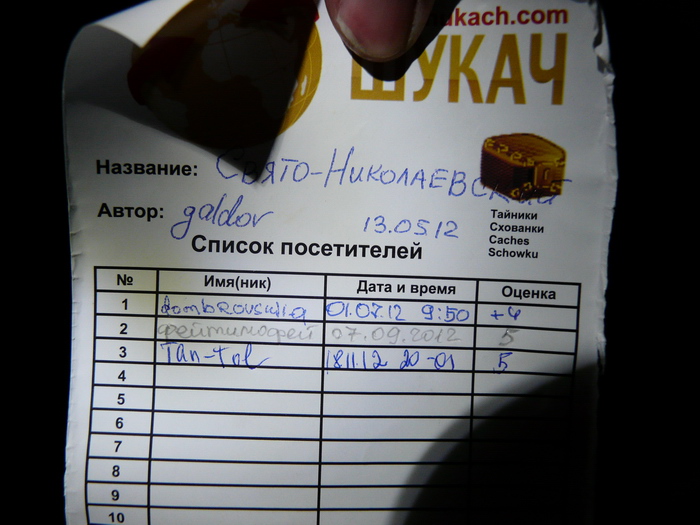 ukach.com
ШУКАЧ
Название: Свято-Николаевский
Автор: galdor 13.05 12
Тайники
Схованки
Caches
Schowku
Список посетителей
№ Имя(ник) Дата и время Оценка
1 01.07.12 9:50 +4
2 фейтимофей 07.09.2012 5
3 Tan-tol 18.11.12 20-01 5
4
5
6
7
8
9
10